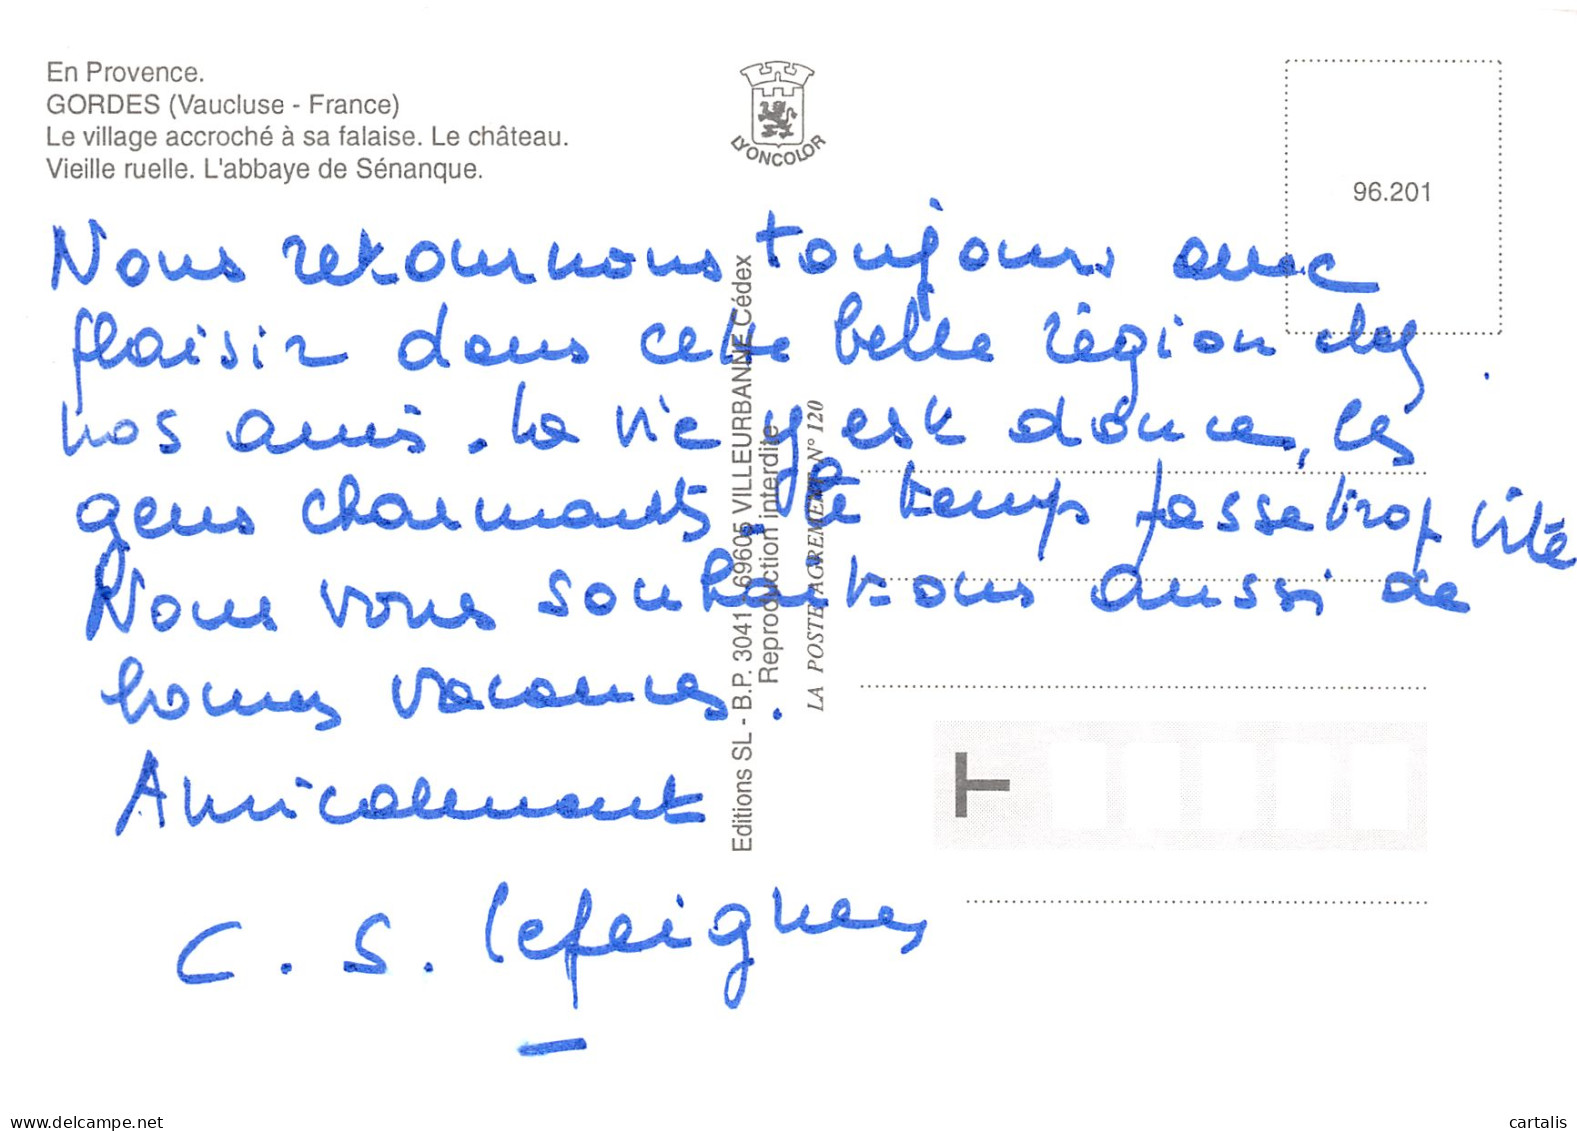 En Provence.
GORDES (Vaucluse - France)
Le village accroché à sa falaise. Le château.
Vieille ruelle. L'abbaye de Sénanque.
LYONCOLOR
96.201
Nous retournons toujours avec
plaisir dans cette belle région chez
nos amis. La vie y est douce, les
gens charmants. Le temps passe trop vite
Nous vous souhaitons aussi de
bonnes vacances.
Amicalement
C. S.
Editions SL - B.P. 3041 - 69605 VILLEURBANNE Cédex
Reproduction interdite
LA POSTE AGREMENT N° 120
T
www.delcampe.net
cartalis